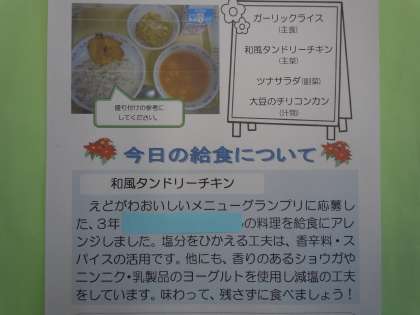 ガーリックライス
(主食)
和風タンドリーチキン
(主菜)
ツナサラダ(副菜)
大豆のチリコンカン
(汁物)
盛り付けの参考に
してください。
今日の給食について
和風タンドリーチキン
えどがわおいしいメニューグランプリに応募し
た、3年 の料理を給食にアレ
ンジしました。塩分をひかえる工夫は、香辛料・ス
パイスの活用です。他にも、香りのあるショウガや
ニンニク・乳製品のヨーグルトを使用し減塩の工夫
をしています。味わって、残さずに食べましょう！